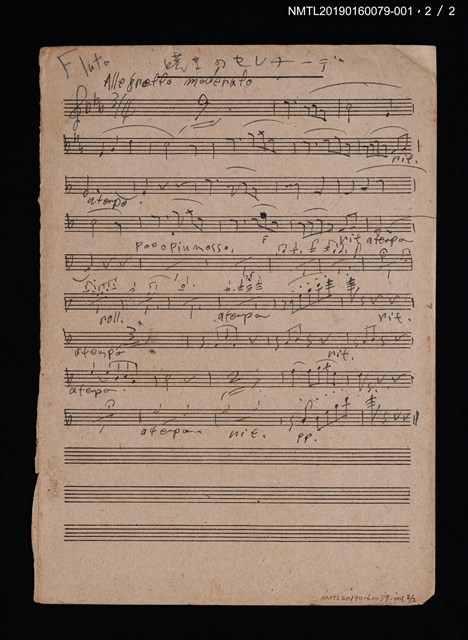 NMTL20190160079-001・2/2
Flute 暁星のセレナーデ
Allegretto moderato
9
rit.
atempo
rit atempo
Poco piu mosso.
roll. atempo rit.
3
atempo rit.
atempo 2
atempo. rit. pp.
NMTL20190160079-001 2/2